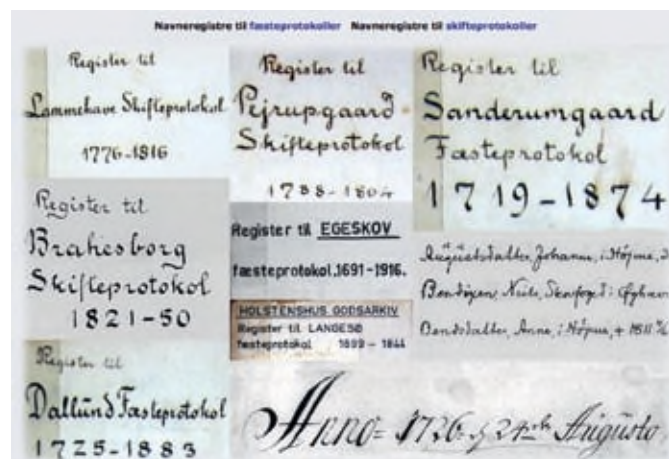 Navneregistre til fæsteprotokoller Navneregistre til skifteprotokoller
Register til
Lammehave Skifteprotokol
1776-1816
Register til
Pejrupgaard
Skifteprotokol
1788-1804
Register til
Sanderumgaard
Fæsteprotokol
1719-1874
Register til
Brahesborg
Skifteprotokol
1821-50
Register til EGESKOV
fæsteprotokol.1691-1916.
HOLSTENSHUS GODSARKIV
Register til LANGESØ
fæsteprotokol 1699 - 1844
Augustsdatter, Johanne, i Højme,
Bendixen, Niels,
Bendsdatter, Anne, i Højme, + 1811
Register til
Dallund Fæsteprotokol
1725-1883
Anno= 1726 24 Augusto